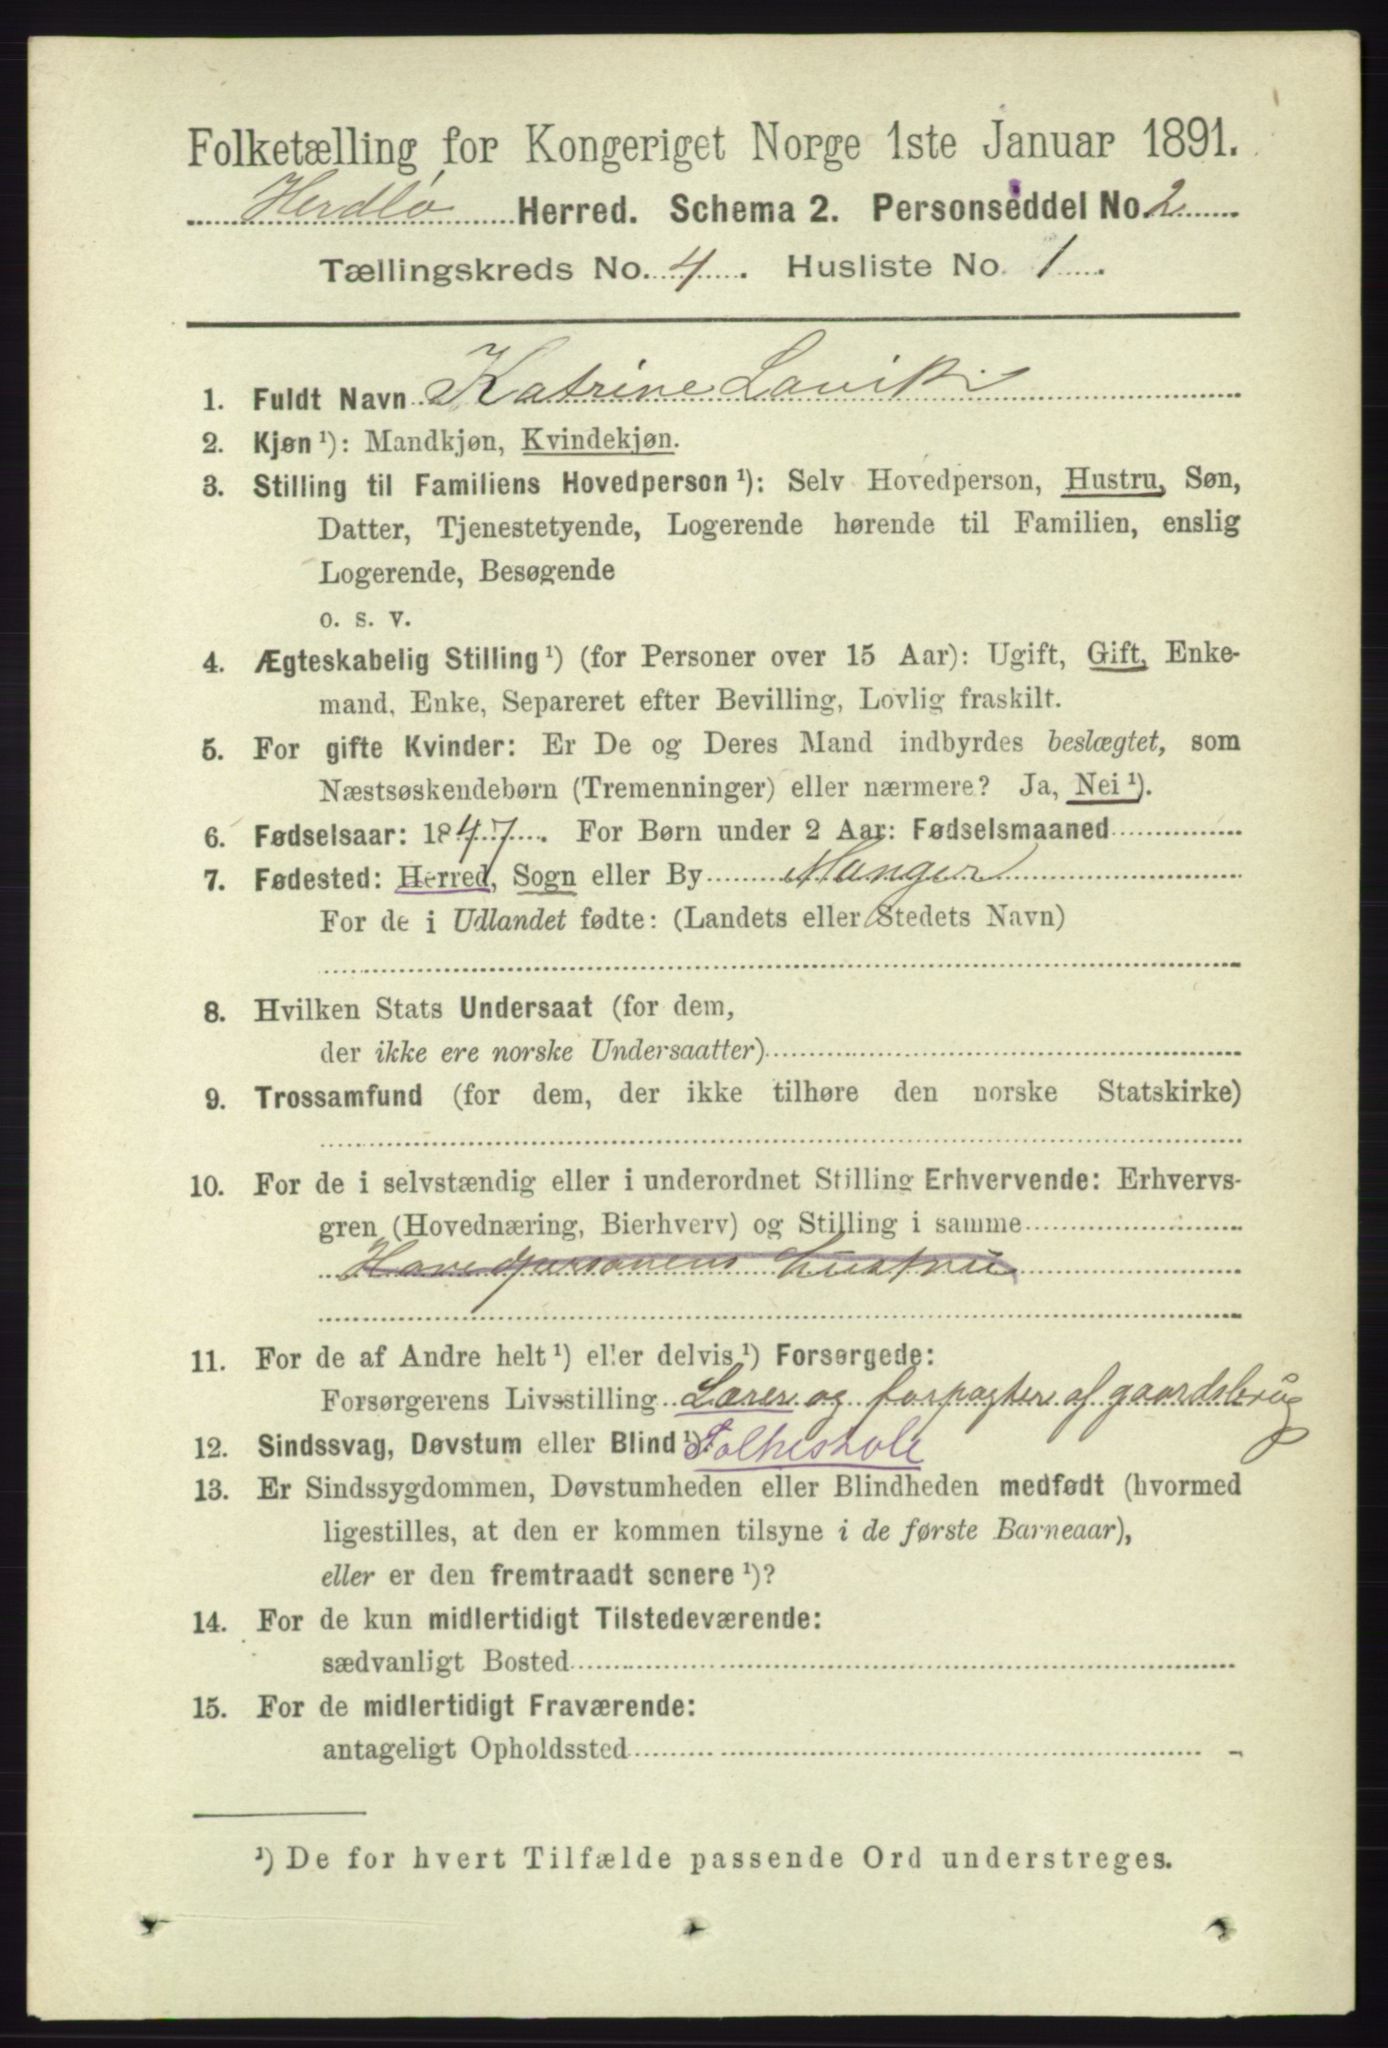 Folketælling for Kongeriget Norge 1ste Januar 1891.
Herdlø Herred. Schema 2. Personseddel No. 2
Tællingskreds No. 4. Husliste No. 1.
1. Fuldt Navn Katrine Lavik
2. Kjøn ¹): Mandkjøn, Kvindekjøn.
3. Stilling til Familiens Hovedperson ¹): Selv Hovedperson, Hustru, Søn,
Datter, Tjenestetyende, Logerende hørende til Familien, enslig
Logerende, Besøgende
o. s. v.
4. Ægteskabelig Stilling ¹) (for Personer over 15 Aar): Ugift, Gift, Enke-
mand, Enke, Separeret efter Bevilling, Lovlig fraskilt.
5. For gifte Kvinder: Er De og Deres Mand indbyrdes beslægtet, som
Næstsøskendebørn (Tremenninger) eller nærmere? Ja, Nei ¹).
6. Fødselsaar: 1847. For Børn under 2 Aar: Fødselsmaaned
7. Fødested: Herred, Sogn eller By Manger
For de i Udlandet fødte: (Landets eller Stedets Navn)
8. Hvilken Stats Undersaat (for dem,
der ikke ere norske Undersaatter)
9. Trossamfund (for dem, der ikke tilhøre den norske Statskirke)
10. For de i selvstændig eller i underordnet Stilling Erhvervende: Erhvervs-
gren (Hovednæring, Bierhverv) og Stilling i samme
Hovedpersonens hustru
11. For de af Andre helt ¹) eller delvis ¹) Forsørgede:
Forsørgerens Livsstilling Lærer og forpagter af gaardsbrug
12. Sindssvag, Døvstum eller Blind ¹). Folkeskole
13. Er Sindssygdommen, Døvstumheden eller Blindheden medfødt (hvormed
ligestilles, at den er kommen tilsyne i de første Barneaar),
eller er den fremtraadt senere ¹)?
14. For de kun midlertidigt Tilstedeværende:
sædvanligt Bosted
15. For de midlertidigt Fraværende:
antageligt Opholdssted
¹) De for hvert Tilfælde passende Ord understreges.